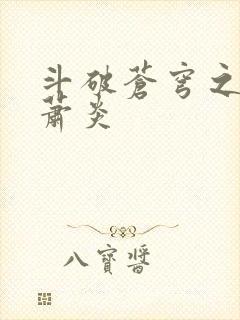 斗破蒼穹之
蕭炎
八寶醬